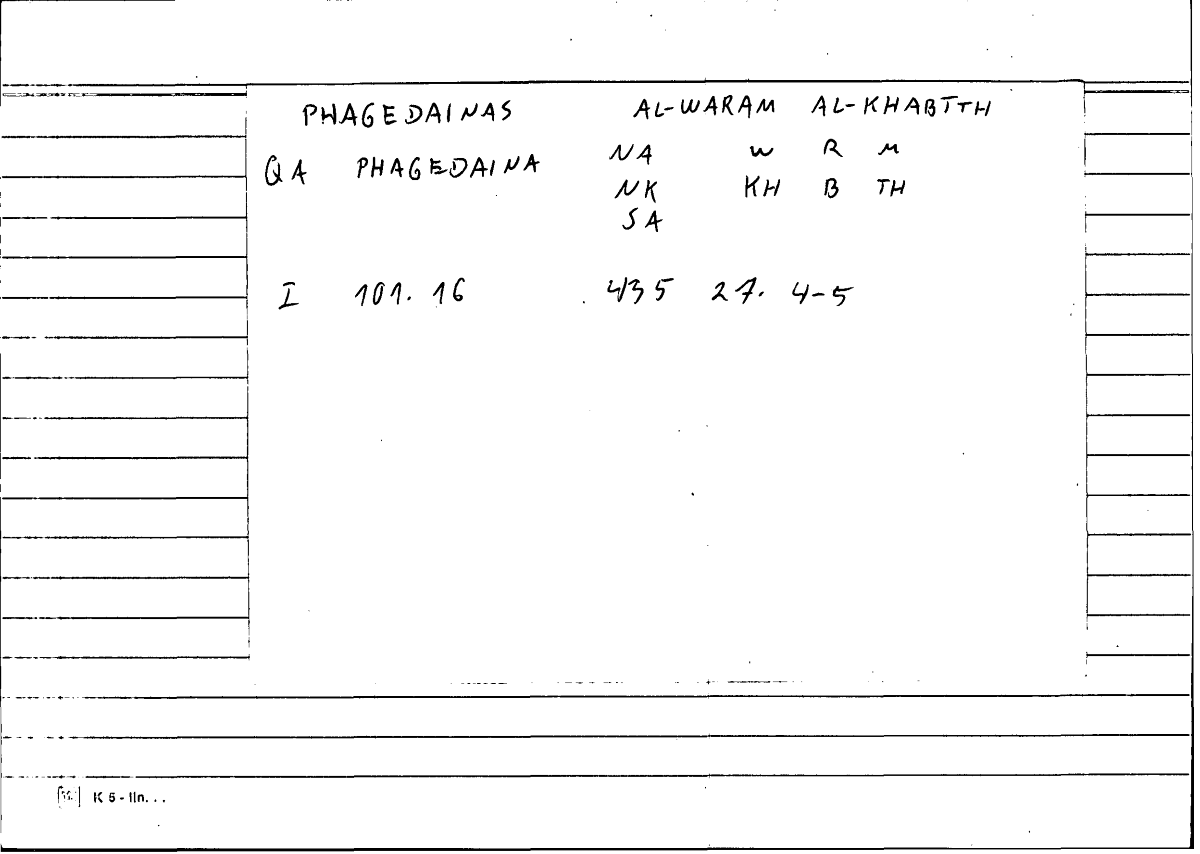 PHAGEDAINAS AL-WARAM AL-KHABĪTH
QA PHAGEDAINA NA W R M
NK KH B TH
SA
I 101. 16 435 27. 4-5
K 5 - lin. . .